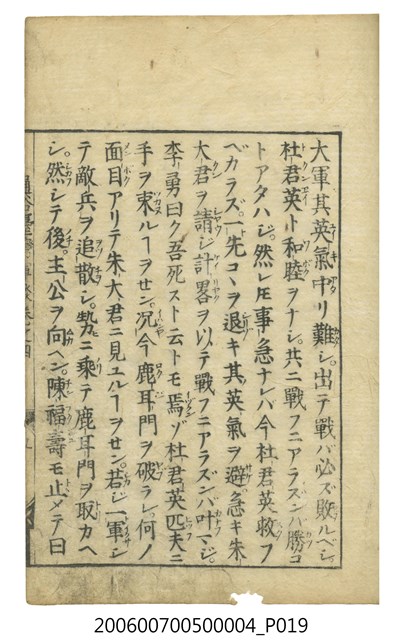 大軍其英氣中リ難シ。出テ戰バ必ズ敗ルベシ。
杜君英ト和睦ヲナシ。共ニ戰フニアラズンバ勝コ
トアタハジ。然レ𪜈事急ナレバ今杜君英救フ
ベカラズ。一先コヽヲ退キ其英氣ヲ避。急キ朱
大君ヲ請ジ計畧ヲ以テ戰フニアラズンバ叶マジ。
李勇曰ク吾死スト云トモ焉ゾ杜君英匹夫ニ
手ヲ束ルヿヲセン。况今鹿耳門ヲ破ラレ。何ノ
面目アリテ朱大君ニ見エルヿヲセン。若シ一軍シ
テ敵兵ヲ追散シ。勢ニ乘テ鹿耳門ヲ取カヘ
シ。然シテ後。主公ヲ向ヘン。陳福壽モ止メテ曰
200600700500004_P019